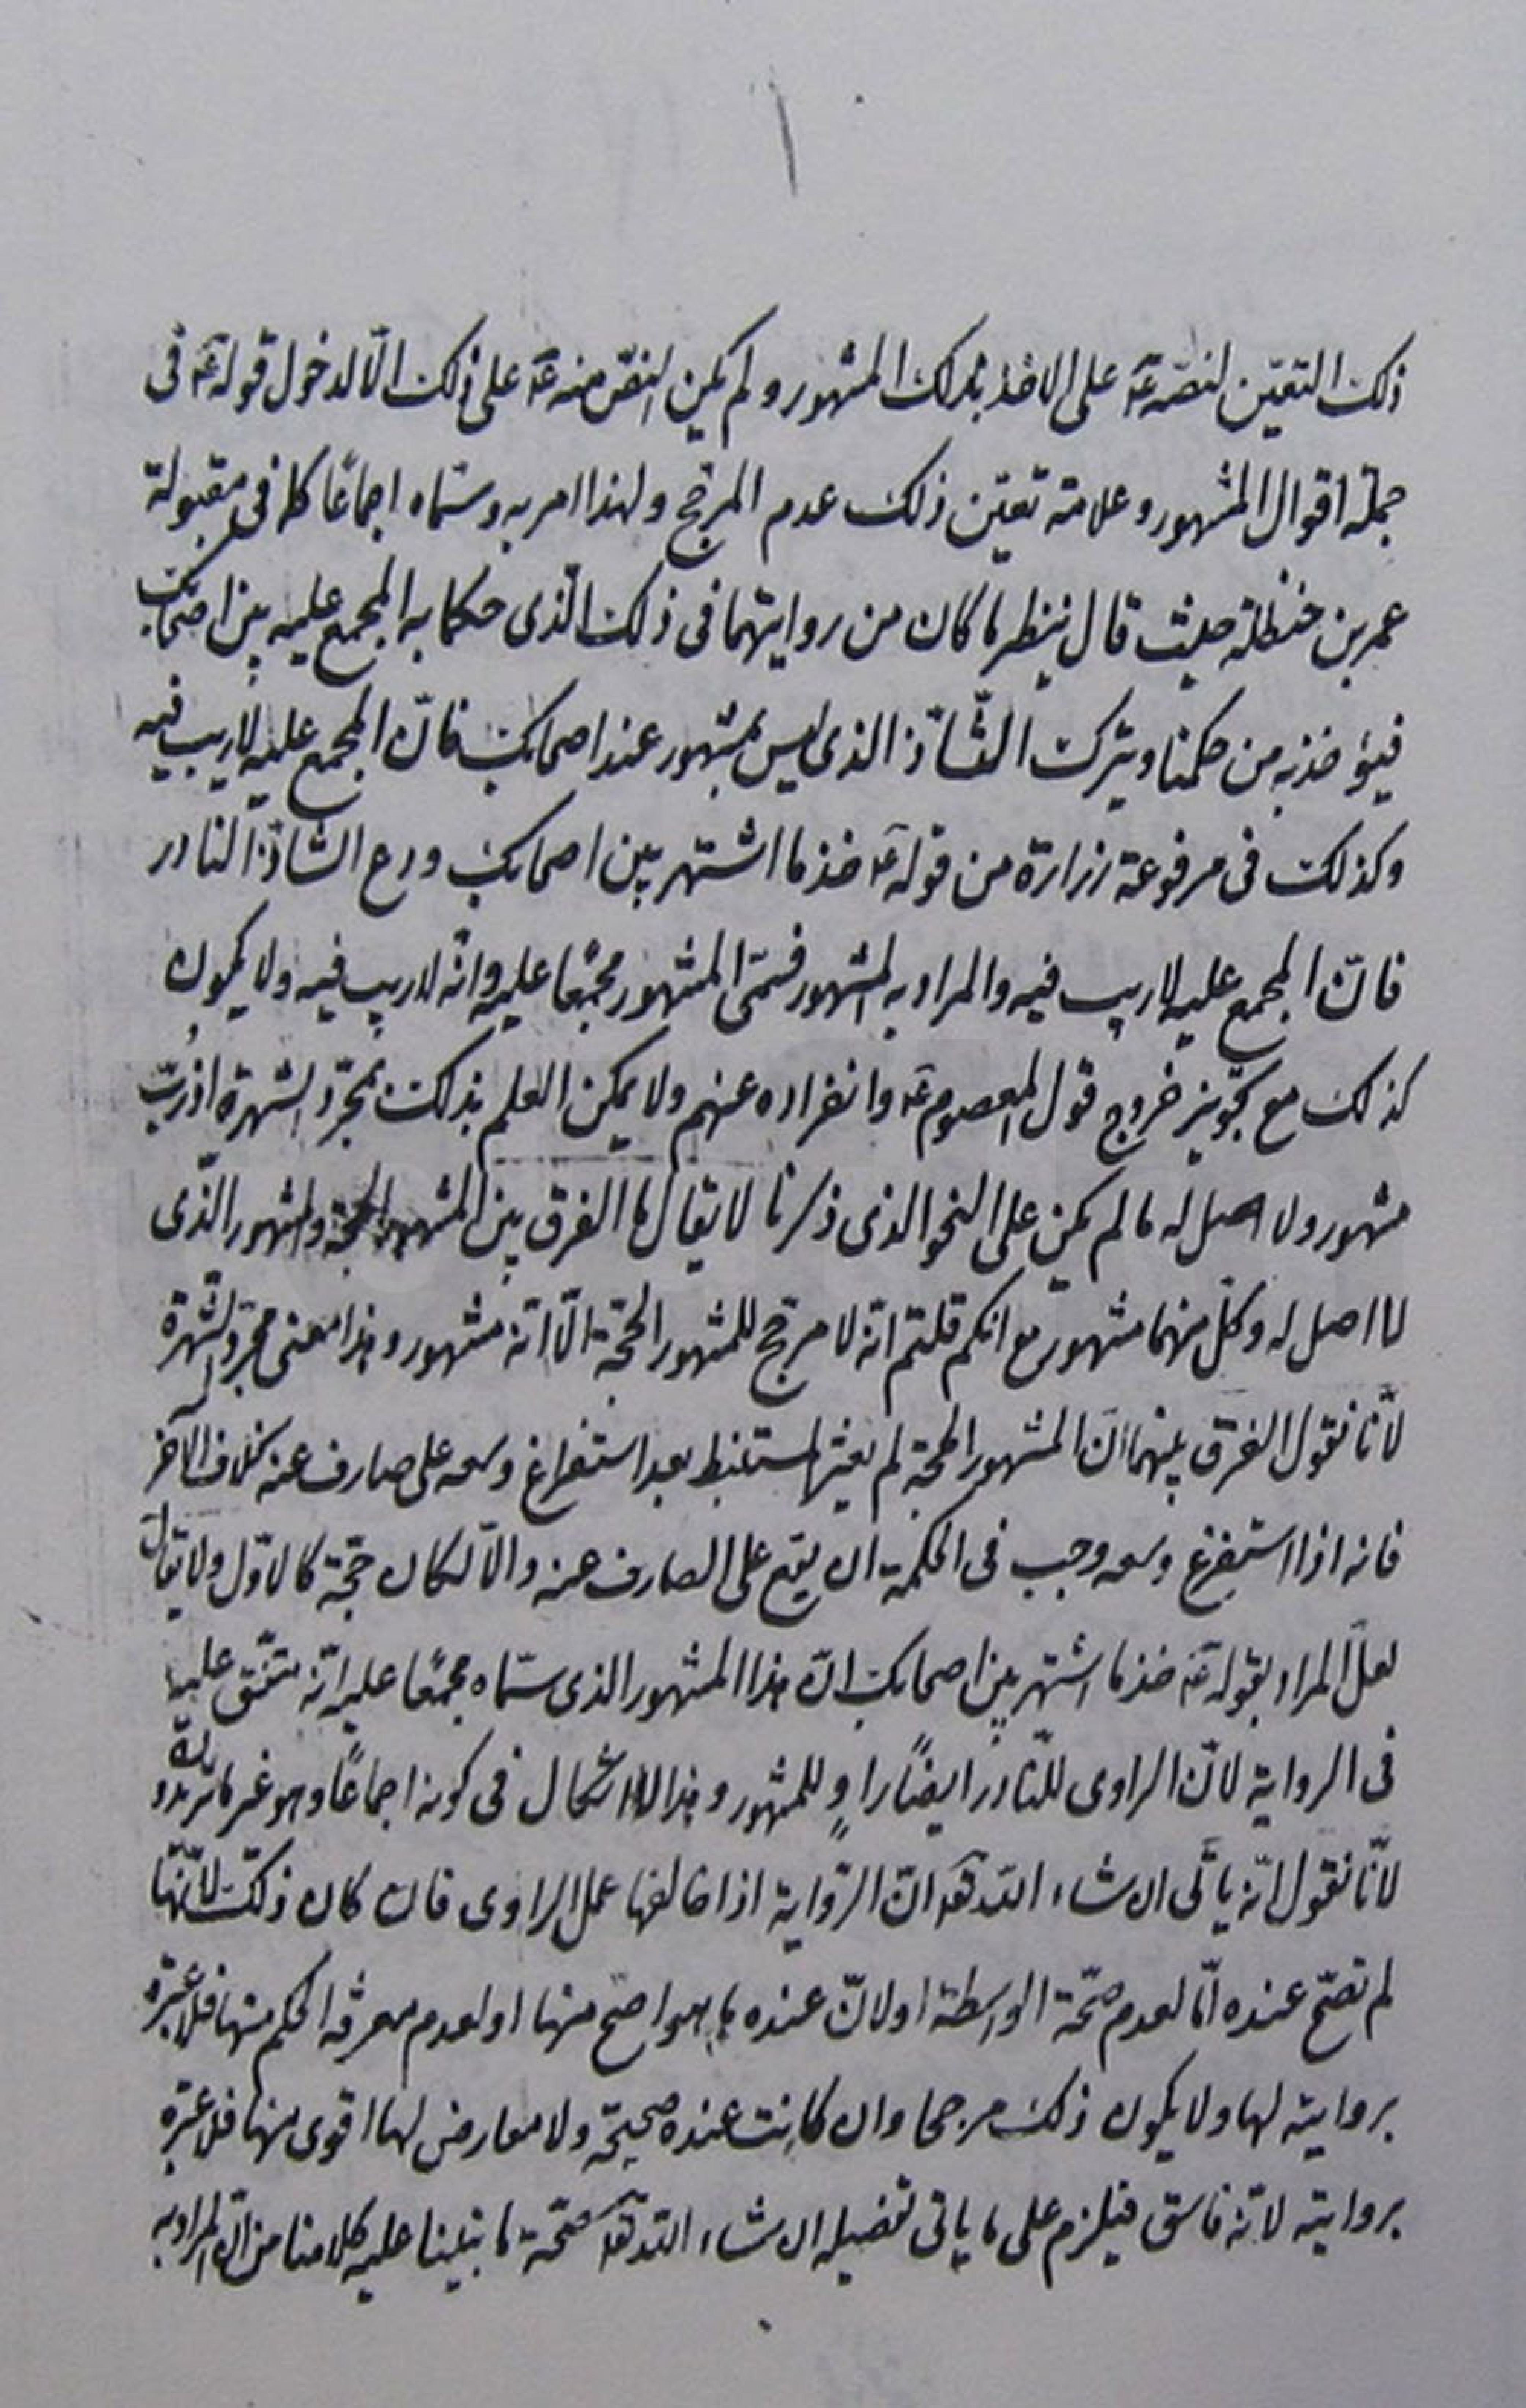 ذلك التعيّن لنصّه عۤ على الاخذ بذلك المشهور ولم يكن النصّ منه عۤ على ذلك الّا لدخول قوله عۤ فى
جملة اقوال المشهور وعلامة تعيّن ذلك عدم المرجّح ولهذا امر به وسمّاه اجماعًا كما فى مقبولة
عمر بن حنظلة حيث قال ينظر ما كان من روايتهما فى ذلك الّذى حكما به المجمع عليه بين اصحابك
فيؤخذ به من حكمنا ويترك الشّاذّ الذى ليس بمشهور عند اصحابك فانّ المجمع عليه لا ريب فيه
وكذلك فى مرفوعة زرارة من قوله عۤ خذ ما اشتهر بين اصحابك ودع الشاذّ النادر
فانّ المجمع عليه لا ريب فيه والمراد به المشهور فسمّى المشهور مجمعًا عليه وانّه لا ريب فيه ولا يكون
كذلك مع تجويز خروج قول المعصوم عۤ وانفراده عنهم ولا يمكن العلم بذلك بمجرّد الشهرة اذ ربّ
مشهور ولا اصل له ما لم يكن على النحو الذى ذكرنا لا يقال ما الفرق بين المشهور الحجّة والمشهور الّذى
لا اصل له وكلّ منهما مشهور مع انكم قلتم انّه لا مرجّح للمشهور الحجّة الّا انّه مشهور وهذا معنى مجرّد الشّهرة
لانّا نقول الفرق بينهما انّ المشهور الحجّة لم يعثر المستنبط بعد استفراغ وسعه على صارف عنه بخلاف الآخر
فانه اذا استفرغ وسعه وجب فى الحكمة ان يقع على الصارف عنه والّا لكان حجّة كالاوّل ولا يقال
لعلّ المراد بقوله عۤ خذ ما اشتهر بين اصحابك انّ هذا المشهور الذى سمّاه مجمعًا عليه انّه متّفق عليه
فى الرواية لانّ الراوى للنّادر ايضًا راوٍ للمشهور وهذا لا اشكال فى كونه اجماعًا وهو غير ما تريدونه
لانّا نقول انّه ياتى ان شاء اللّه تعۤ انّ الرّواية اذا خالفها عمل الراوى فان كان ذلك لانّها
لم تصحّ عنده امّا لعدم صحّة الواسطة او لانّ عنده ما هو اصحّ منها او لعدم معرفة الحكم منها فلا عبرة
بروايته لها ولا يكون ذلك مرجحا وان كانت عنده صحيحة ولا معارض لها اقوى منها فلا عبرة
بروايته لانّه فاسق فيلزم على ما ياتى تفصيله ان شاء اللّه تعۤ صحّة ما بنينا عليه كلامنا من انّ المراد به